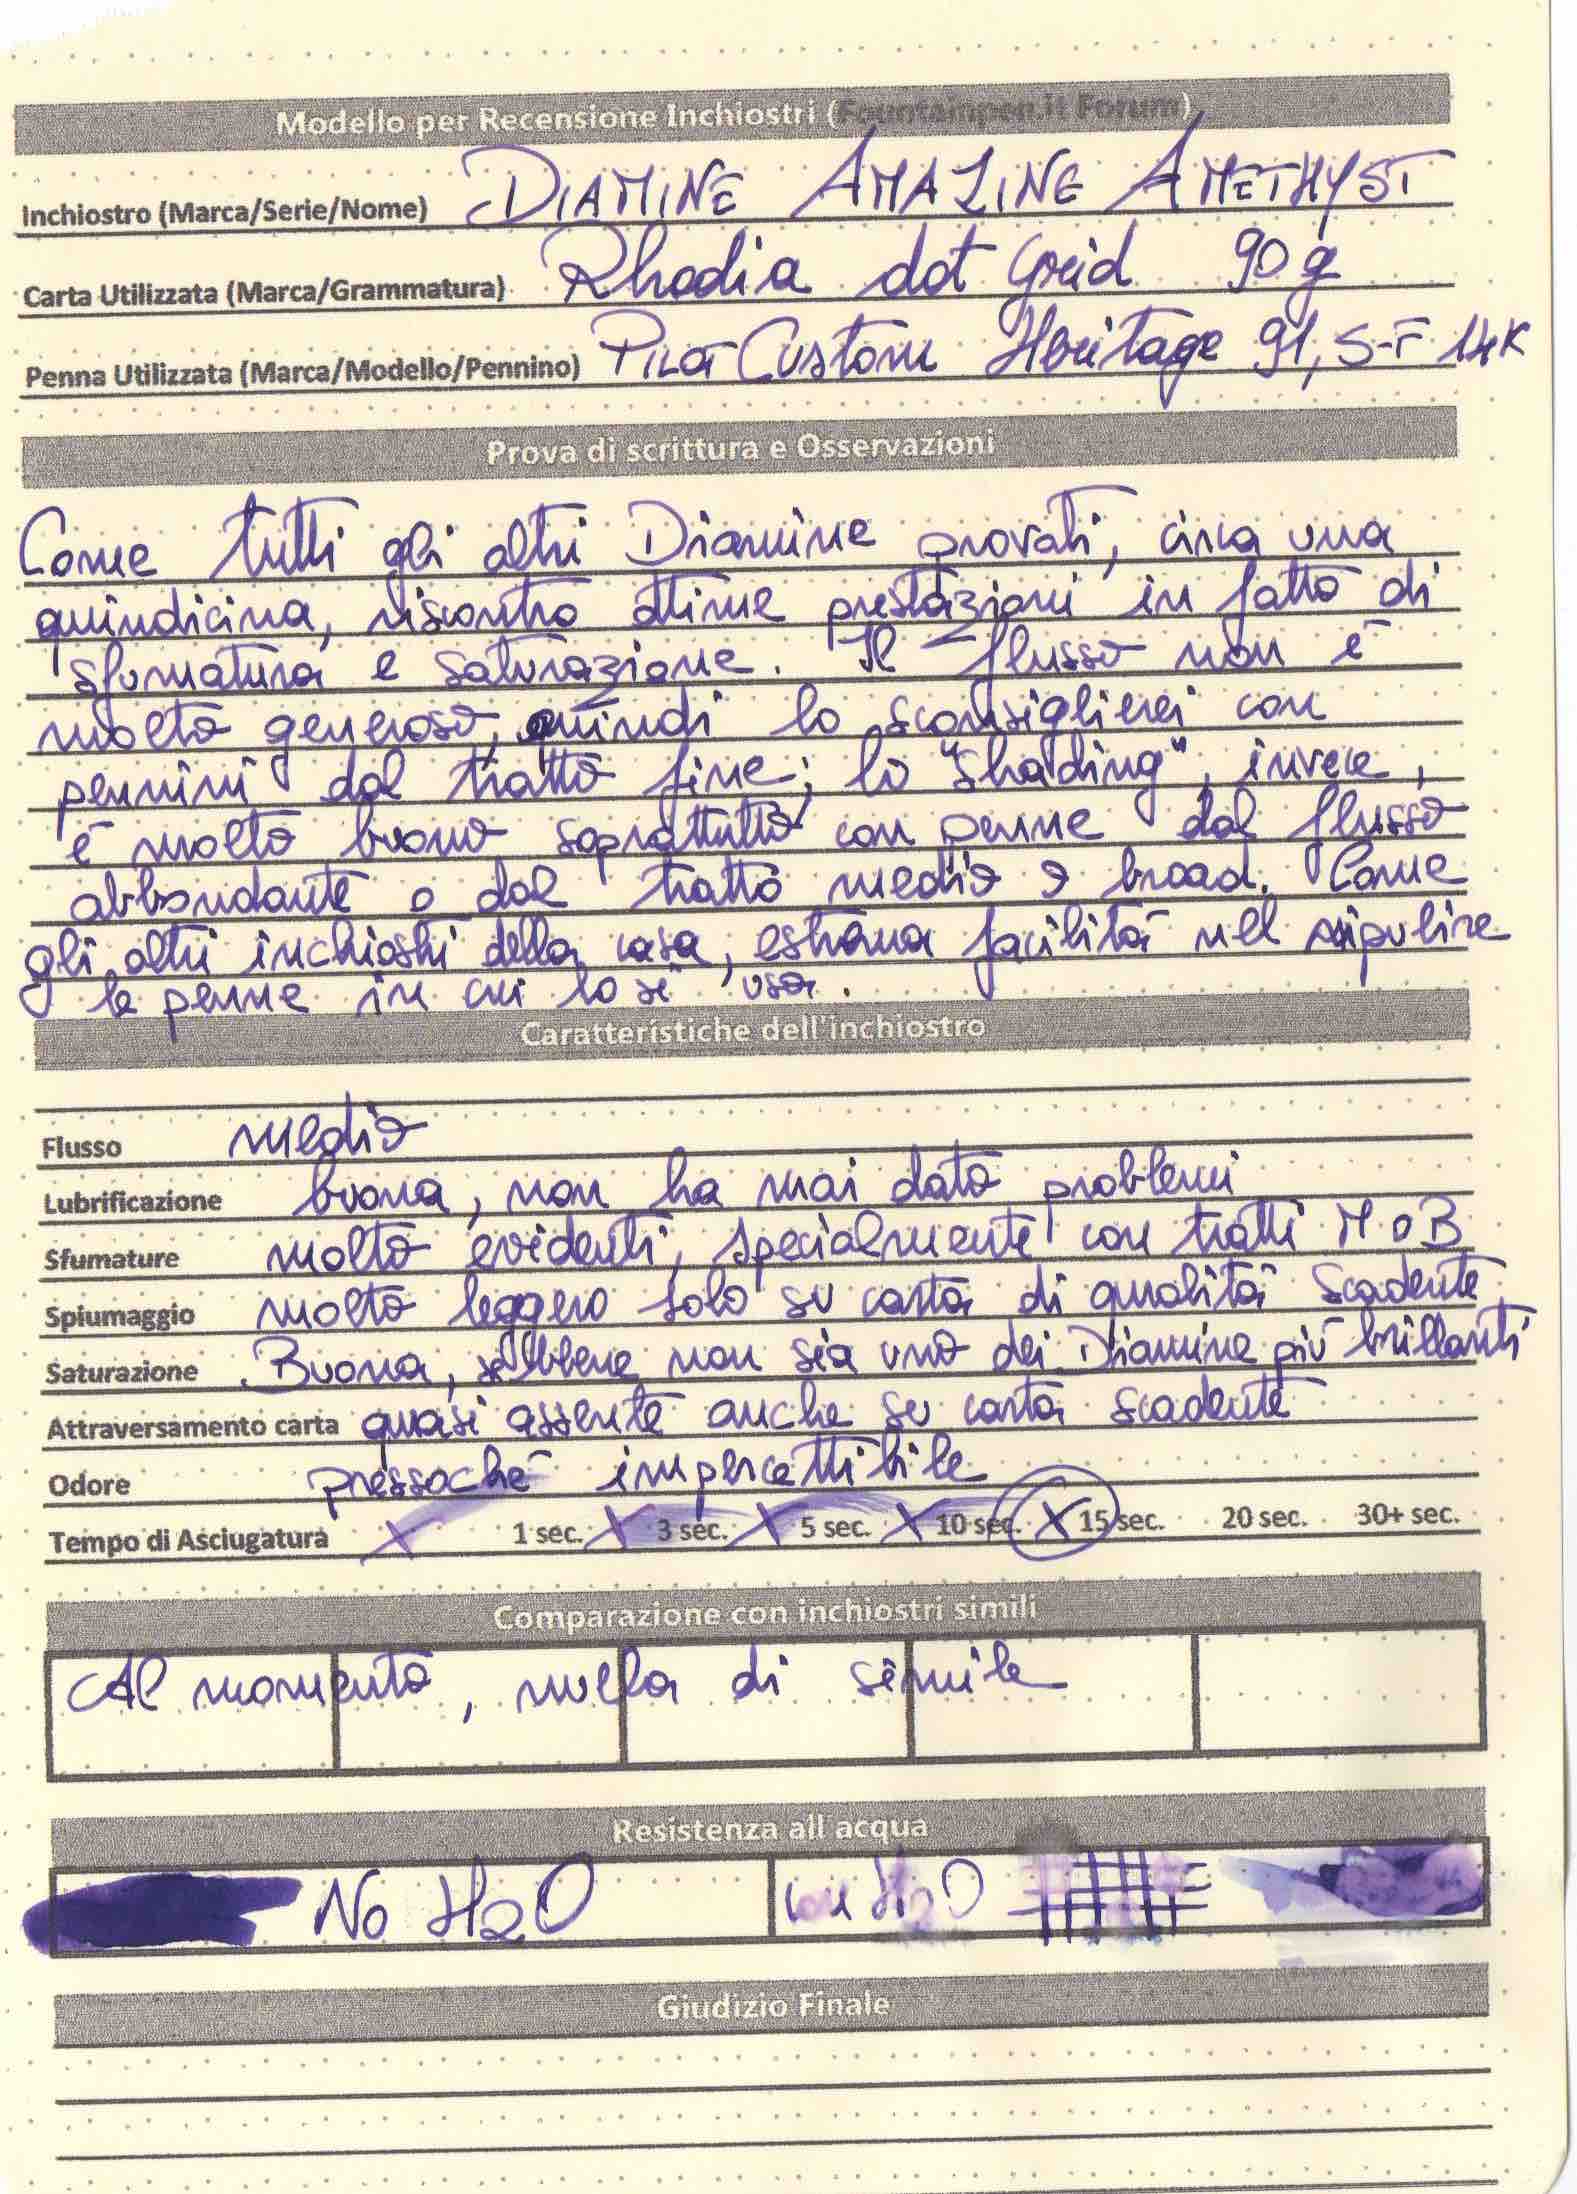 Modello per Recensione Inchiostri (Fountainpen.it Forum)
Inchiostro (Marca/Serie/Nome) DIAMINE AMAZING AMETHYST
Carta Utilizzata (Marca/Grammatura) Rhodia dot Grid 90 g
Penna Utilizzata (Marca/Modello/Pennino) PILOT Custom Heritage 91, S-F 14K
Prova di scrittura e Osservazioni
Come tutti gli altri Diamine provati, circa una
quindicina, riscontro ottime prestazioni in fatto di
sfumatura e saturazione. Il flusso non è
molto generoso, quindi lo sconsiglierei con
pennini dal tratto fine; lo "shading", invece,
è molto buono soprattutto con penne dal flusso
abbondante o dal tratto medio o broad. Come
gli altri inchiostri della casa, estrema facilità nel ripulire
le penne in cui lo si usa.
Caratteristiche dell'inchiostro
Flusso medio
Lubrificazione buona, non ha mai dato problemi
Sfumature molto evidenti, specialmente con tratti M o B
Spiumaggio molto leggero solo su carta di qualità scadente
Saturazione Buona, sebbene non sia uno dei Diamine più brillanti
Attraversamento carta quasi assente anche su carta scadente
Odore pressoché impercettibile
Tempo di Asciugatura X 1 sec. X 3 sec. X 5 sec. X 10 sec. X 15 sec. 20 sec. 30+ sec.
Comparazione con inchiostri simili
Al momento, nulla di simile
Resistenza all'acqua
No H2O con H2O
Giudizio Finale